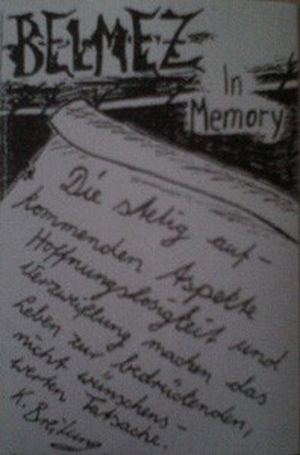 BELMEZ
In
Memory
Die stetig auf-
kommenden Aspekte
Hoffnungslosigkeit und
Verzweiflung machen das
Leben zur bedrückenden,
nicht wünschens-
werten Tatsache.
K. Breitung